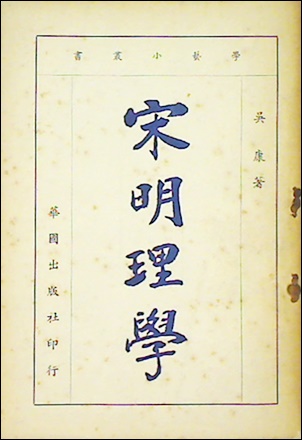 學藝小叢書
吳康著
宋明理學
華國出版社印行